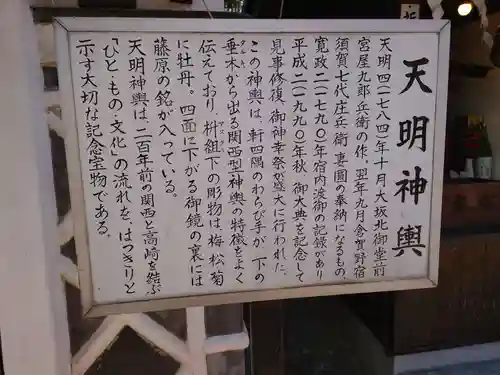 天明神輿
天明四(一七八四)年十月大坂北御堂前
宮屋九郎兵衛の作。翌年九月倉賀野宿
須賀七代庄兵衛・妻園の奉納になるもの。
寛政二(一七九〇)年宿内渡御の記録があり
平成二(一九九〇)年秋、御大典を記念して
見事修復、御神幸祭が盛大に行われた。
この神輿は、軒四隅のわらび手が、下の
垂木から出る関西型神輿の特徴をよく
伝えており、枡組下の彫物は梅・松・菊
に牡丹。四面に下がる御鏡の裏には
藤原の銘が入っている。
天明神輿は、二百年前の関西と高崎を結ぶ
「ひと・もの・文化」の流れを、はっきりと
示す大切な記念宝物である。